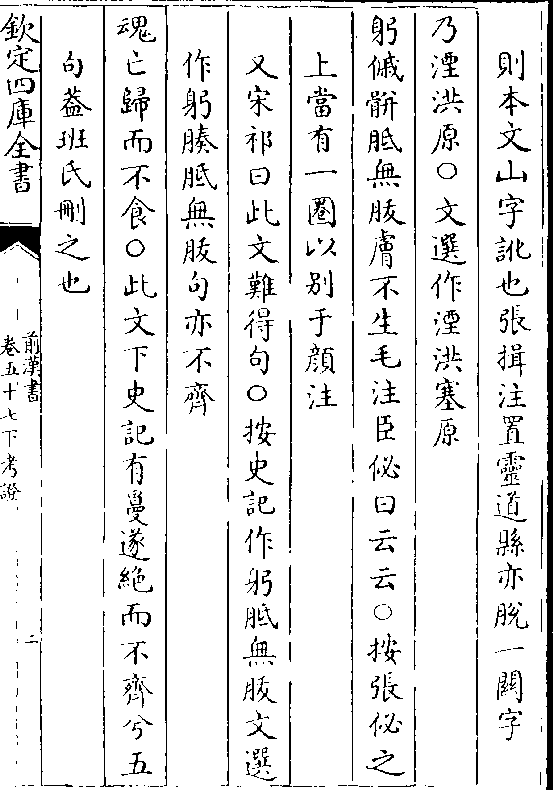 則本文山字訛也張揖注置靈道縣亦脫一關字
乃湮洪原○文選作湮洪塞原
躬傶骿胝無胈膚不生毛注臣佖曰云云○按張佖之
上當有一圈以别于顔注
又宋祁曰此文難得句○按史記作躬胝無胈文選
作躬腠胝無胈句亦不齊
魂亡歸而不食○此文下史記有敻邈絶而不齊兮五
句葢班氏刪之也
欽定四庫全書
前漢書
卷五十七下考證
二